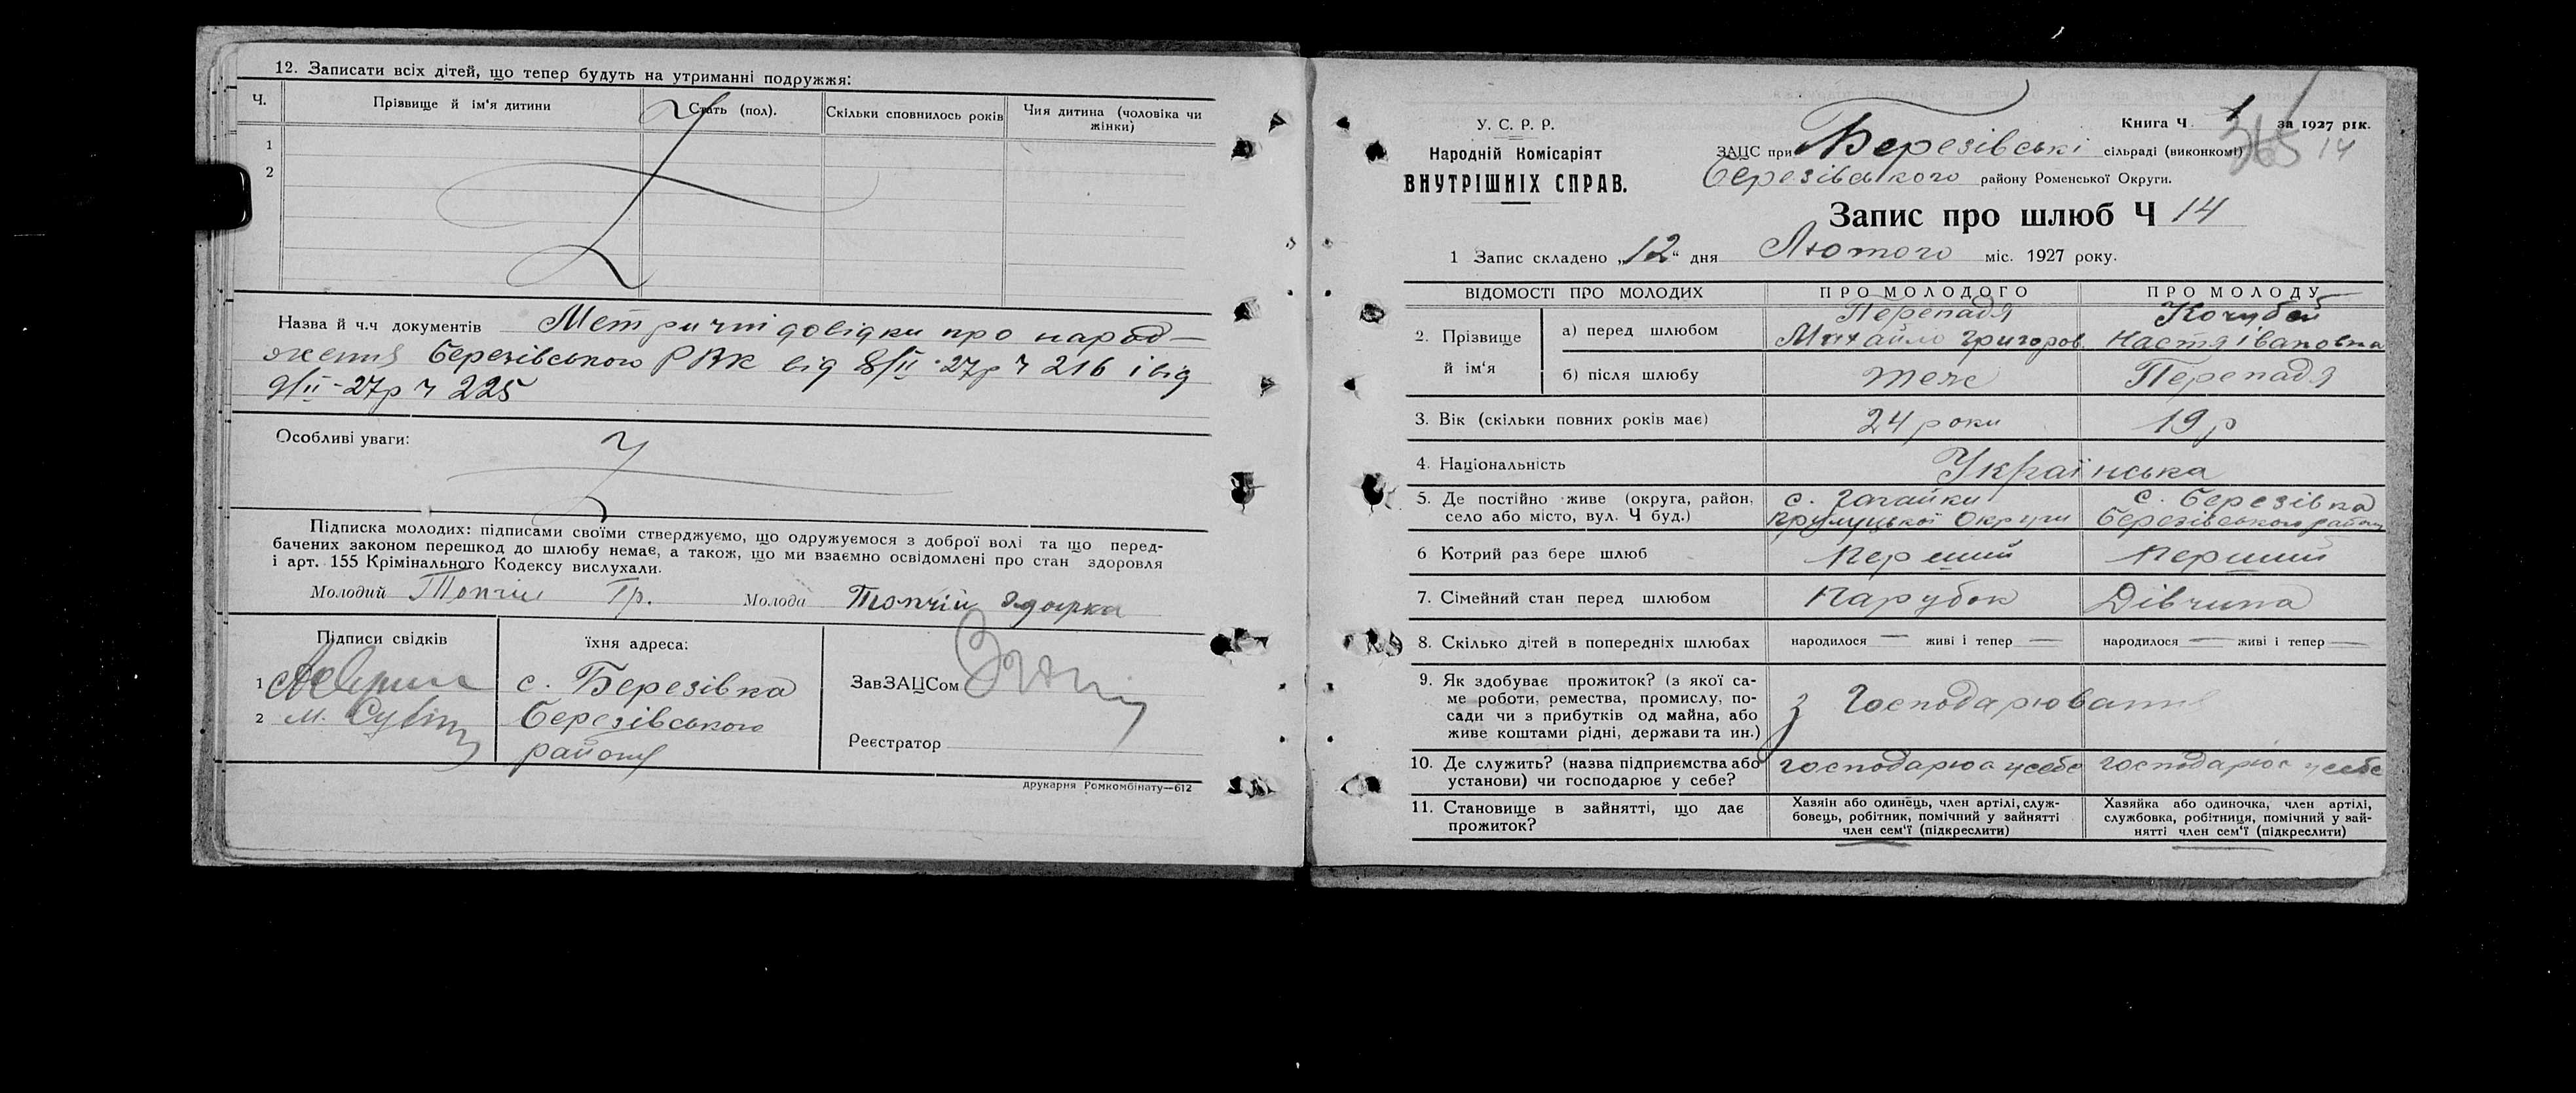 12. Записати всіх дітей, що тепер будуть на утриманні подружжя:
Ч. Прізвище й ім'я дитини Стать (пол). Скільки сповнилось років Чия дитина (чоловіка чи жінки)
1
2
Назва й ч.ч документів Метричні довідки про народ-
ження Березівського РВК від 8/II-27р ч 216 і від
9/II-27р ч 225
Особливі уваги:
Підписка молодих: підписами своїми стверджуємо, що одружуємося з доброї волі та що перед-
бачених законом перешкод до шлюбу немає, а також, що ми взаємно освідомлені про стан здоровля
і арт. 155 Крімінального Кодексу вислухали.
Молодий Топчій Гр. Молода Топчій Одарка
Підписи свідків їхня адреса:
1 с. Березівка ЗавЗАЦСом
2 М. Березівського
району Реєстратор
друкарня Ромкомбінату—612
У. С. Р. Р.
Народній Комісаріят
ВНУТРІШНІХ СПРАВ.
Книга Ч 1 за 1927 рік.
365 14
ЗАЦС при Березівські сільраді (виконкомі)
Березівського району Роменської Округи.
Запис про шлюб Ч 14
1 Запис складено „12" дня Лютого міс. 1927 року.
ВІДОМОСТІ ПРО МОЛОДИХ ПРО МОЛОДОГО ПРО МОЛОДУ
2. Прізвище й ім'я а) перед шлюбом Перепадя Михайло Григоров. Кочубей Настя івановна
б) після шлюбу теж Перепадя
3. Вік (скільки повних років має) 24 роки 19 р
4. Національність Українська
5. Де постійно живе (округа, район, с. Гагайки с. Березівка
село або місто, вул. Ч буд.) Прулуцької Округи Березівського району
6 Котрий раз бере шлюб Перший Перший
7. Сімейний стан перед шлюбом Парубок Дівчина
8. Скілько дітей в попередніх шлюбах народилося — живі і тепер — народилося — живі і тепер —
9. Як здобуває прожиток? (з якої са-
ме роботи, ремества, промислу, по-
сади чи з прибутків од майна, або
живе коштами рідні, держави та ин.) з Господарювання
10. Де служить? (назва підприємства або господарює усебе господарює усебе
установи) чи господарює у себе?
11. Становище в зайнятті, що дає
прожиток?
Хазяїн або одинець, член артілі, служ-
бовець, робітник, помічний у зайнятті
член сем'ї (підкреслити)
Хазяйка або одиночка, член артілі,
службовка, робітниця, помічний у зай-
нятті член сем'ї (підкреслити)